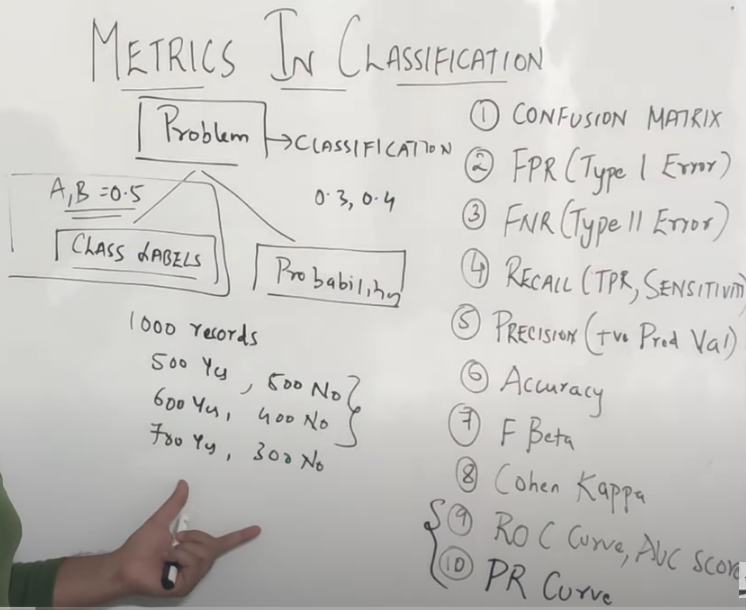 METRICS IN CLASSIFICATION
Problem
CLASSIFICATION
A,B = 0.5
0.3, 0.4
CLASS LABELS
Probability
1000 records
500 Yes, 500 No
600 Yes, 400 No
700 Yes, 300 No
① CONFUSION MATRIX
② FPR (Type I Error)
③ FNR (Type II Error)
④ RECALL (TPR, SENSITIVITY
⑤ PRECISION (+ve Pred Val)
⑥ Accuracy
⑦ F Beta
⑧ Cohen Kappa
⑨ ROC Curve, AUC Score
⑩ PR Curve